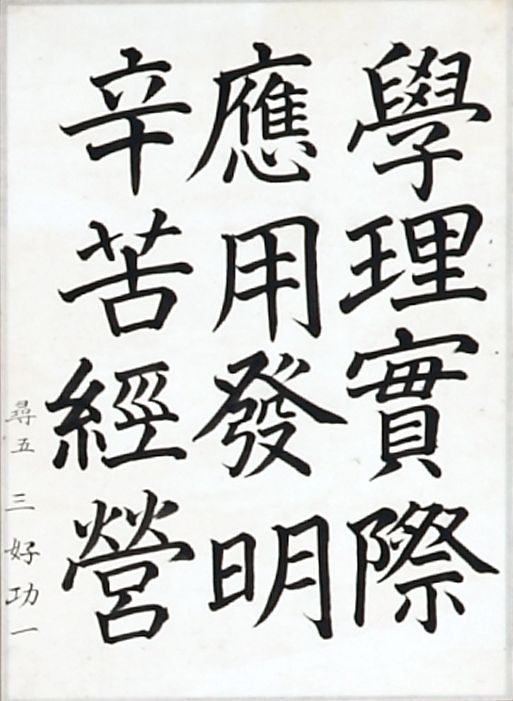 學理實際
應用發明
辛苦經營
尋五 三好功一